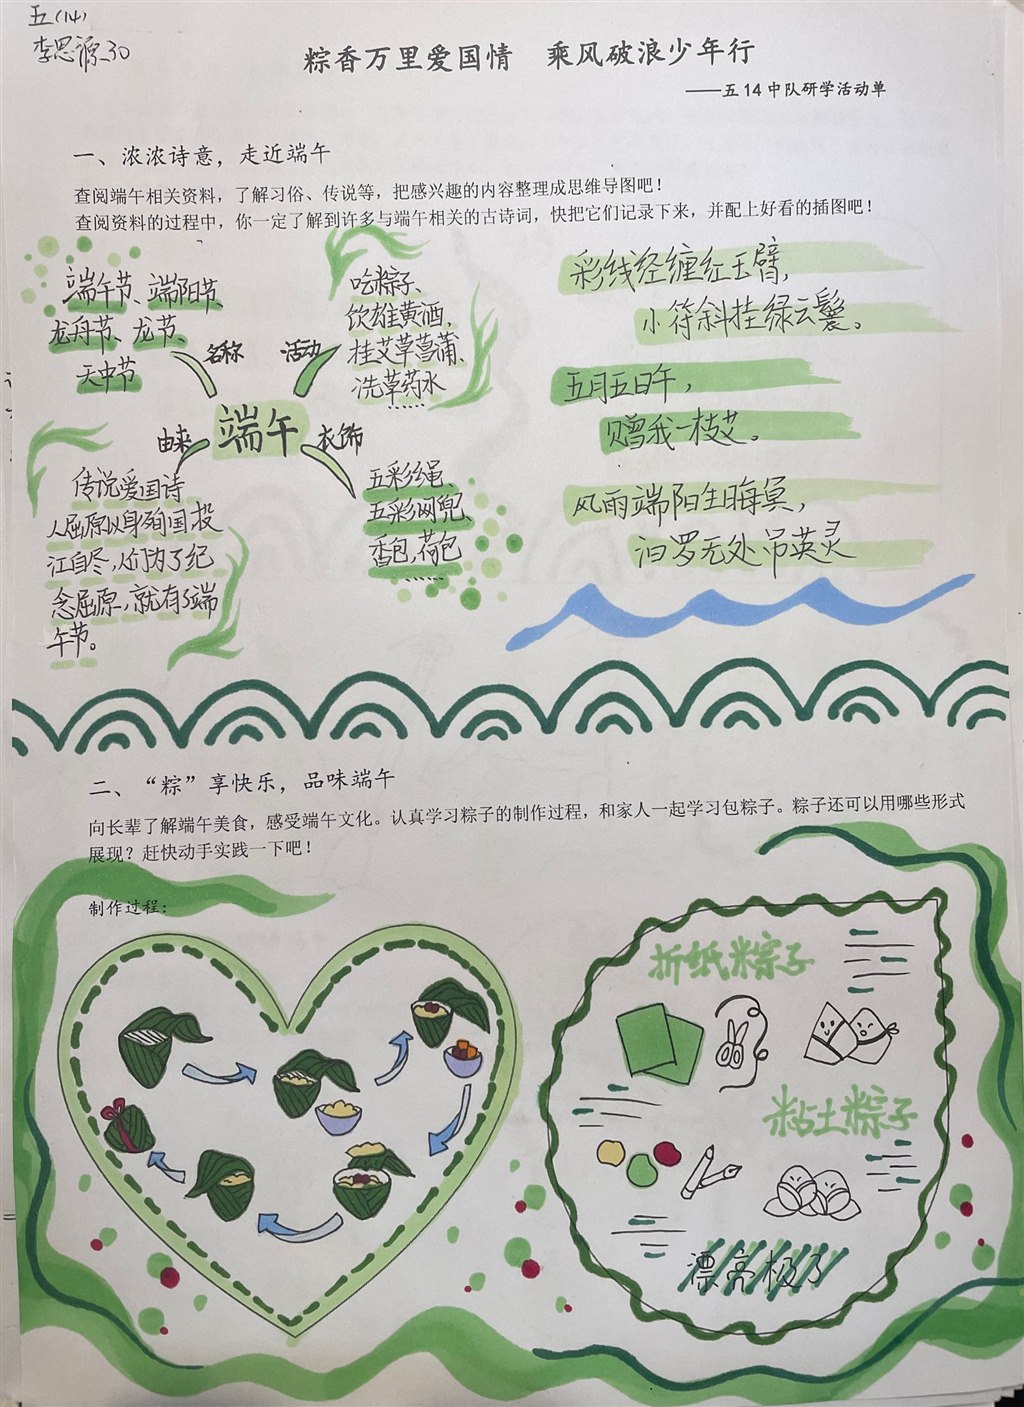 五(14)
李思源 30
粽香万里爱国情 乘风破浪少年行
——五14中队研学活动单
一、浓浓诗意，走近端午
查阅端午相关资料，了解习俗、传说等，把感兴趣的内容整理成思维导图吧！
查阅资料的过程中，你一定了解到许多与端午相关的古诗词，快把它们记录下来，并配上好看的插图吧！
端午节、端阳节、
龙舟节、龙节、
天中节
名称
活动
吃粽子、
饮雄黄酒、
挂艾草菖蒲、
洗草药水
端午
由来
衣饰
传说爱国诗
人屈原以身殉国投
江自尽，人们为了纪
念屈原，就有了端
午节。
五彩绳、
五彩网兜、
香包，荷包
彩线轻缠红玉臂，
小符斜挂绿云鬟。
五月五日午，
赠我一枝艾。
风雨端阳生晦冥，
汨罗无处吊英灵
二、“粽”享快乐，品味端午
向长辈了解端午美食，感受端午文化。认真学习粽子的制作过程，和家人一起学习包粽子。粽子还可以用哪些形式
展现？赶快动手实践一下吧！
制作过程：
折纸粽子
粘土粽子
漂亮极了